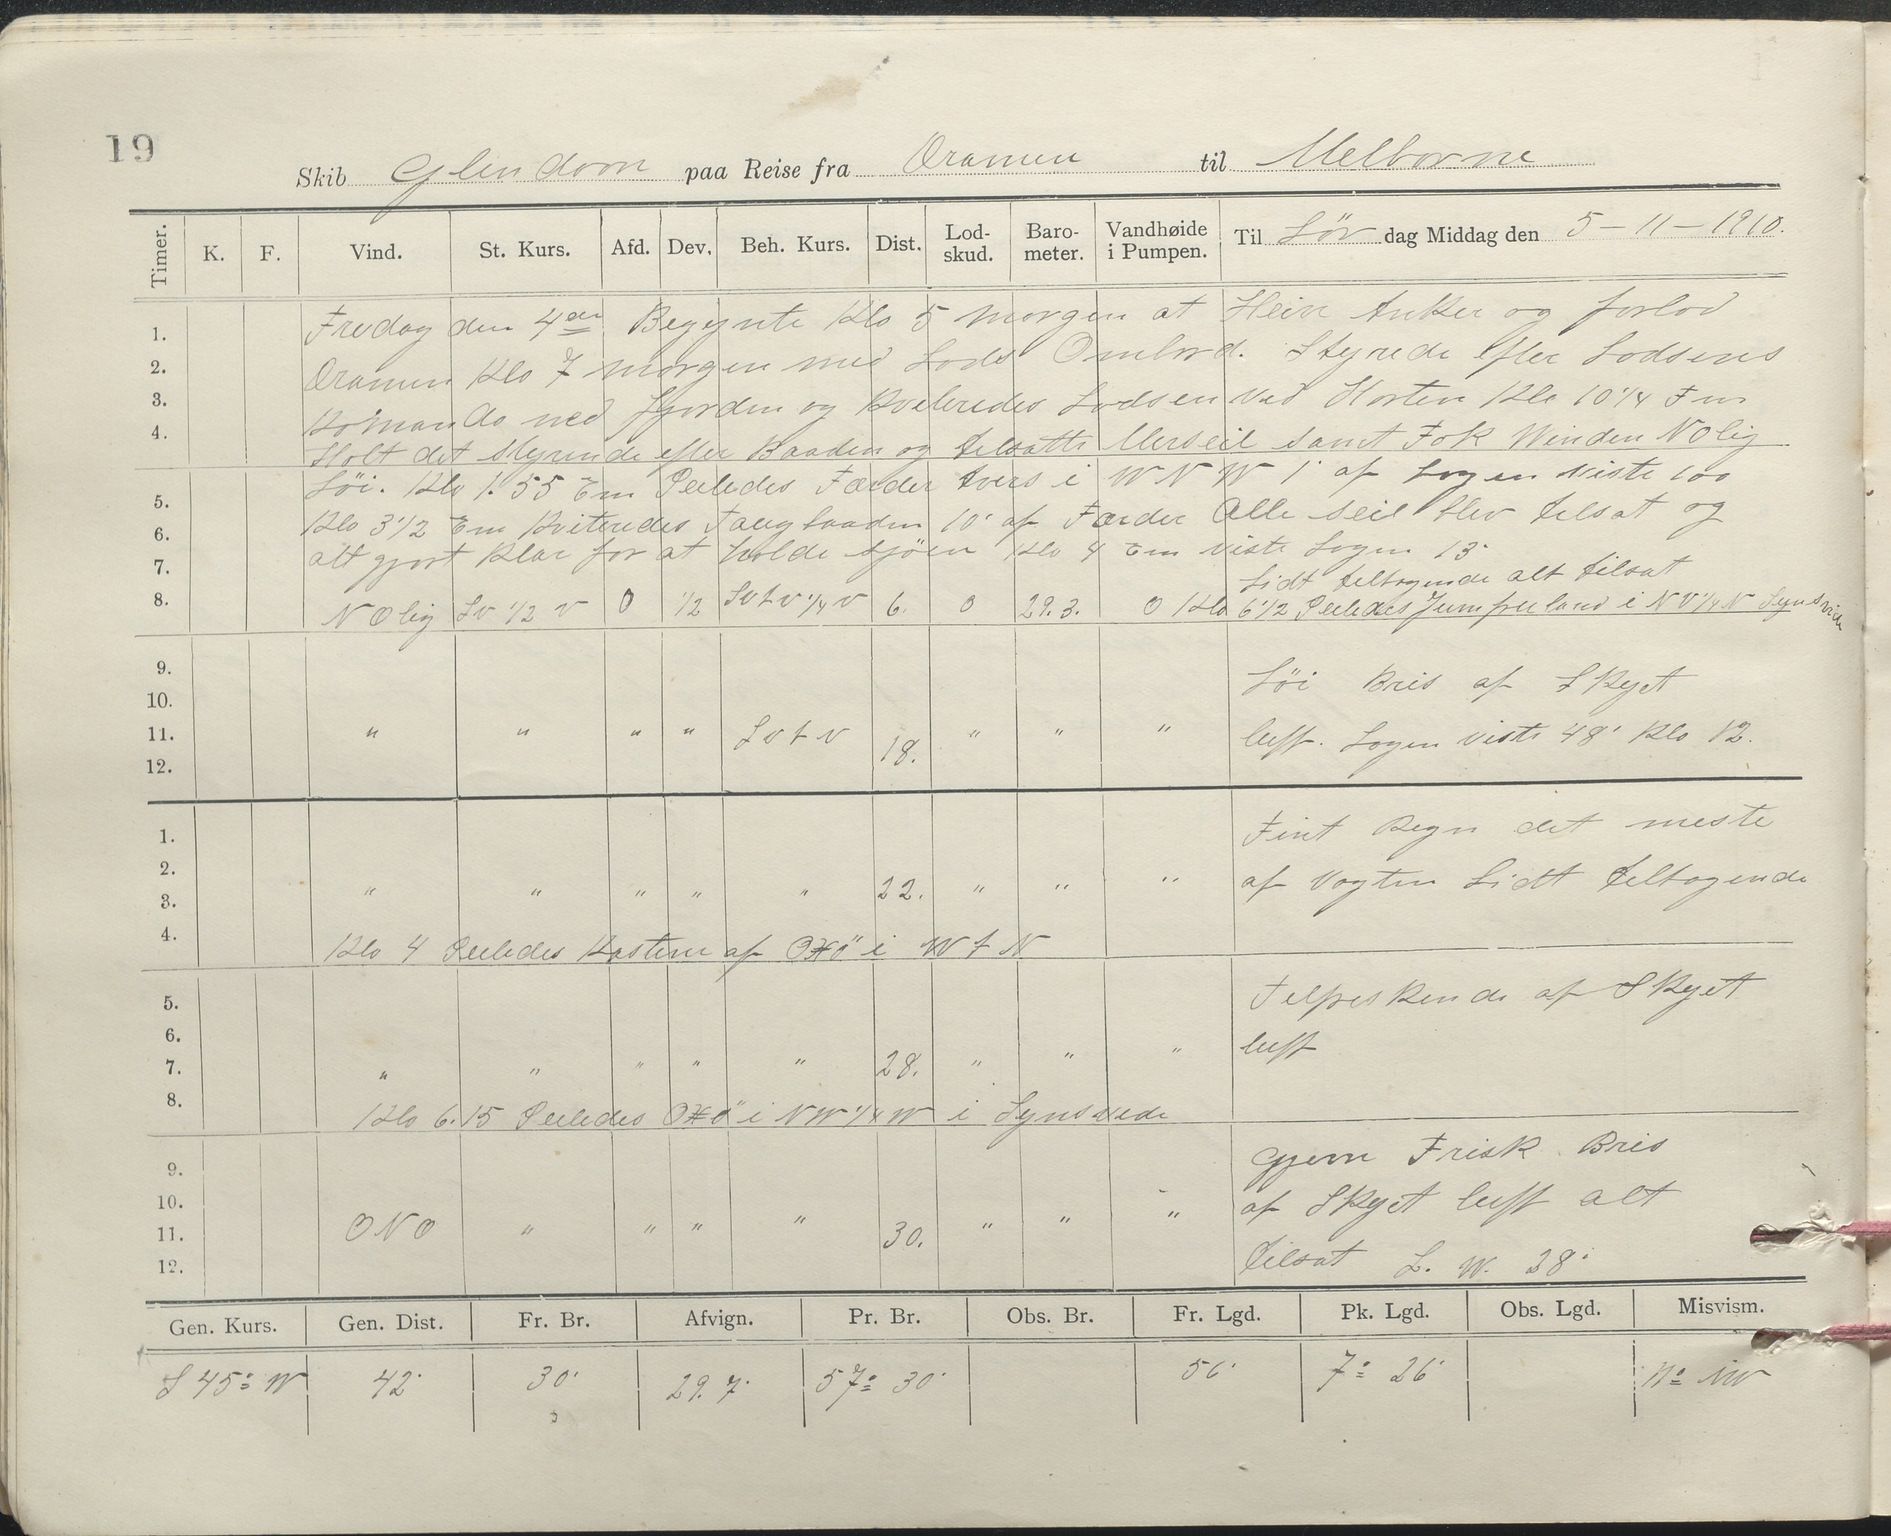 19
Skib Glendoon paa Reise fra Dramen til Melborne
Timer. K. F. Vind. St. Kurs. Afd. Dev. Beh. Kurs. Dist. Lod-skud. Baro-meter. Vandhøide i Pumpen. Til Lör dag Middag den 5-11-1910.
1. Fredag den 4de Begynte Klo 5 morgen at Heive Anker og forlod
2. Dramen Klo 7 morgen med Lods Ombord. Styrede efter Lodsens
3. Komando ned fjorden og kviteredes Lodsen ved Horten Klo 10 1/4 Fm
4. Holt det styrende efter Baaden og tilsatte Merseil samt Fok Winden NOlig
Löi. Klo 1.55 Em Peiledes Færder tvers i WNW 1' af Logen viste 100
5.
6. Klo 3 1/2 Em kviteredes Taugbaaden 10' af Færder Alle seil blev tilsat og
7. alt gjort klar for at holde sjöen Klo 4 Em viste Logen 13'
Lidt tiltagende alt tilsat
8. NOlig Sv 1/2 v 0 1/2 SvtV 1/4 v 6. 0 29.3. 0 Klo 6 1/2 Peiledes Jumfruland i NV 1/4 N Synsvide
9. Löi Bris af Skyet
10.
11. " " " " SvtV 18. " " " luft. Logen viste 48' Klo 12.
12.
1. Fint Regn det meste
2. " " " " " 22. " " " af Vagten Lidt tiltagende
3.
4. Klo 4 Peiledes Kosten af Oxö i WtN
5. Tilfriskende af Skyet
6. luft
7. " " " " " 28. " " "
8. Klo 6.15 Peiledes Oxö i NW 1/4 W i Synsvide
9. Gjevn Frisk Bris
10. af Skyet luft alt
11. ONO " " " " 30. " " "
12. tilsat L. W. 38'
Gen. Kurs. Gen. Dist. Fr. Br. Afvign. Pr. Br. Obs. Br. Fr. Lgd. Pk. Lgd. Obs. Lgd. Misvism.
S 45° W 42' 30' 29.7' 57° 30' 56' 7° 26'